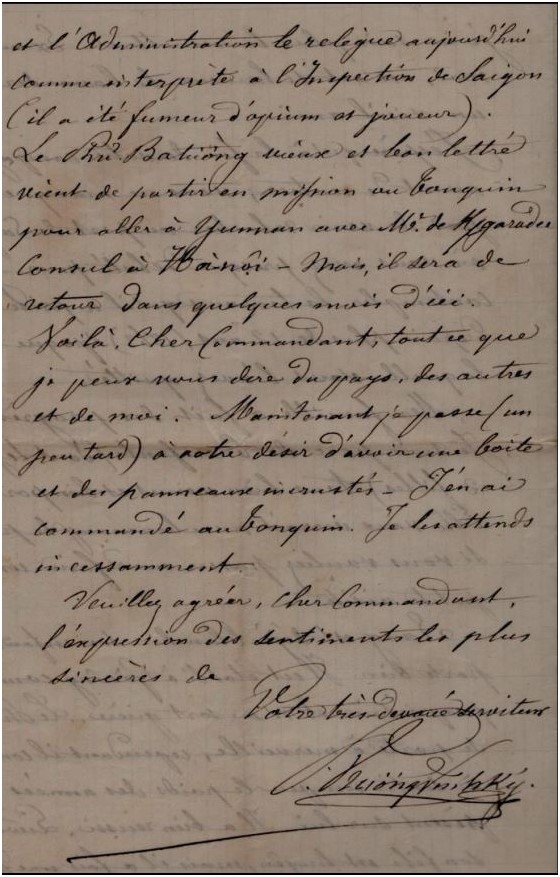 et l'Administration le relègue aujourd'hui
comme interprète à l'Inspection de Saigon
(il a été fumeur d'opium et joueur).
Le Phủ Batiòng vieux et bon lettré
vient de partir en mission au Tonquin
pour aller à Yunnan avec Mr. de Kergaradec
Consul à Hà-nội - Mais, il sera de
retour dans quelques mois d'ici.
Voilà, Cher Commandant, tout ce que
je peux vous dire du pays, des autres
et de moi. Maintenant je passe (un
peu tard) à votre désir d'avoir une boite
et des panneaux incrustés - J'en ai
commandé au Tonquin. Je les attends
incessamment.
Veuillez agréer, Cher Commandant,
l'expression des sentiments les plus
sincères de
Votre très dévoué serviteur
P. Trương Vĩnh Ký.